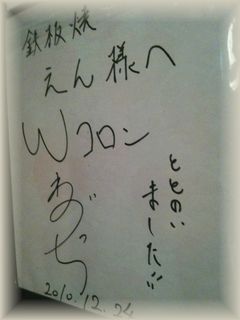 鉄板焼
えん様へ
Wコロン
ねづっち
ととのい
ました!!
2010.12.24